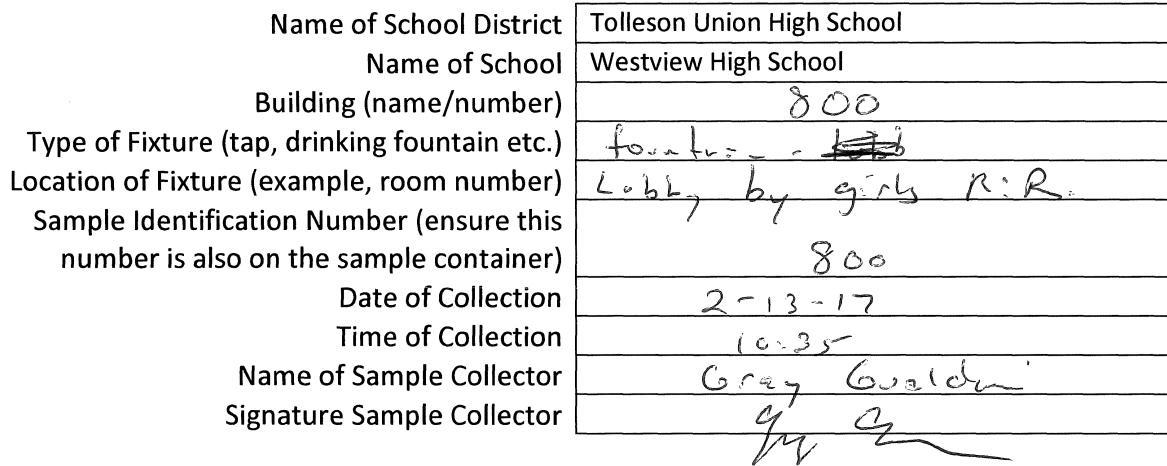 Name of School District Tolleson Union High School
Name of School Westview High School
Building (name/number) 800
Type of Fixture (tap, drinking fountain etc.) fountain -
Location of Fixture (example, room number) Lobby by girls R.R.
Sample Identification Number (ensure this
number is also on the sample container) 800
Date of Collection 2-13-17
Time of Collection 10:35
Name of Sample Collector Gray
Signature Sample Collector